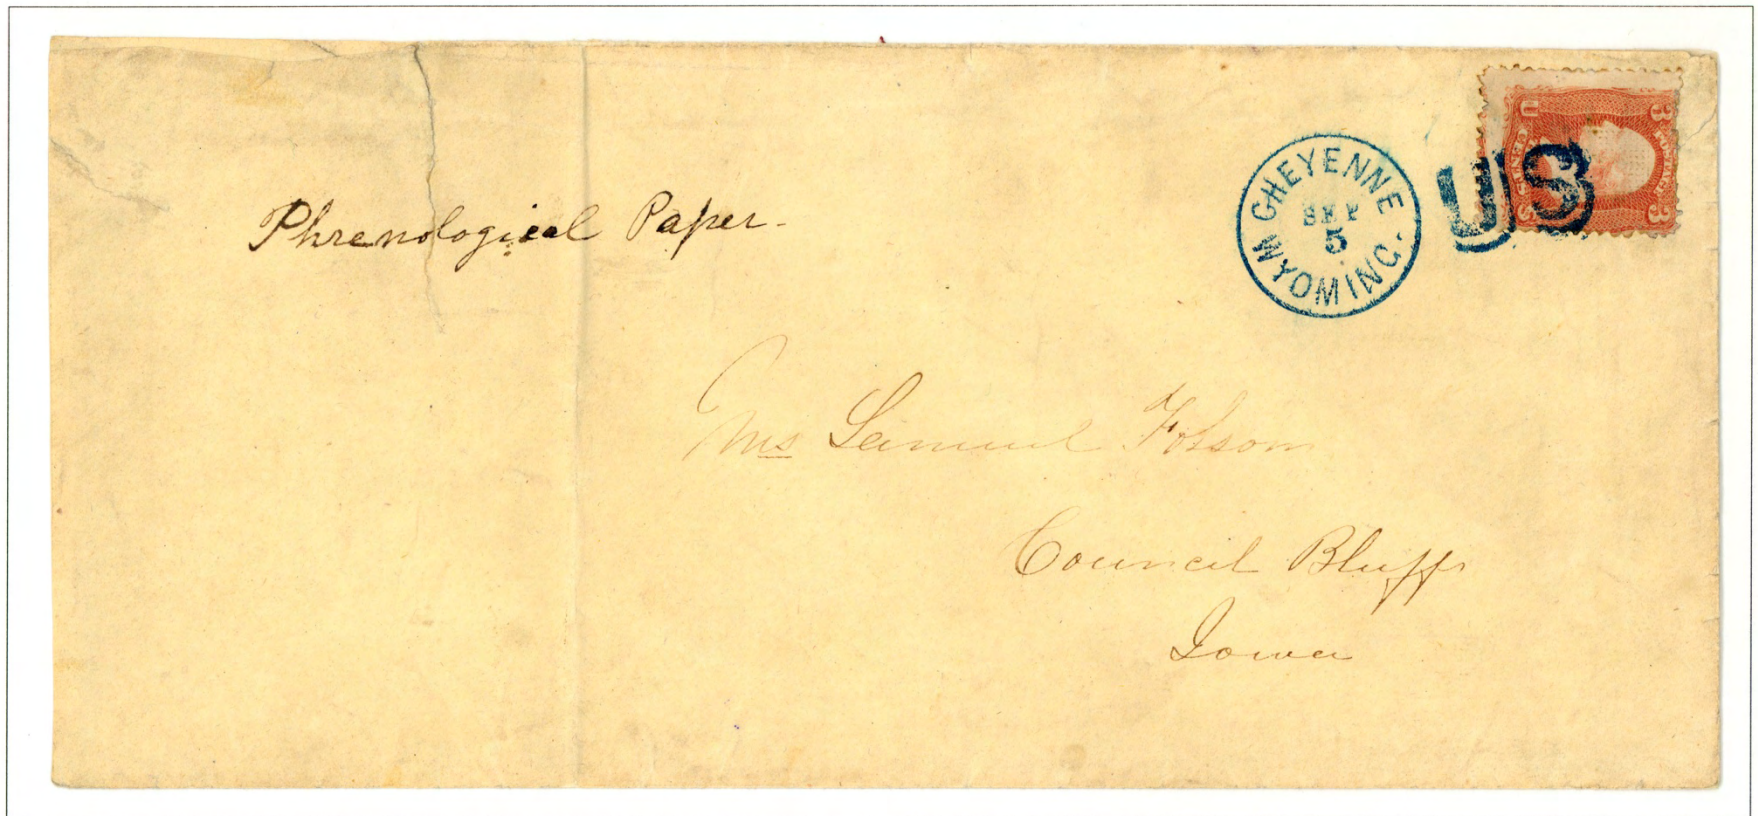 Phrenological Paper-
CHEYENNE
SEP
5
WYOMING.
US
U S
3 3
POSTAGE
CENTS
Mrs Samuel Folsom
Council Bluffs
Iowa